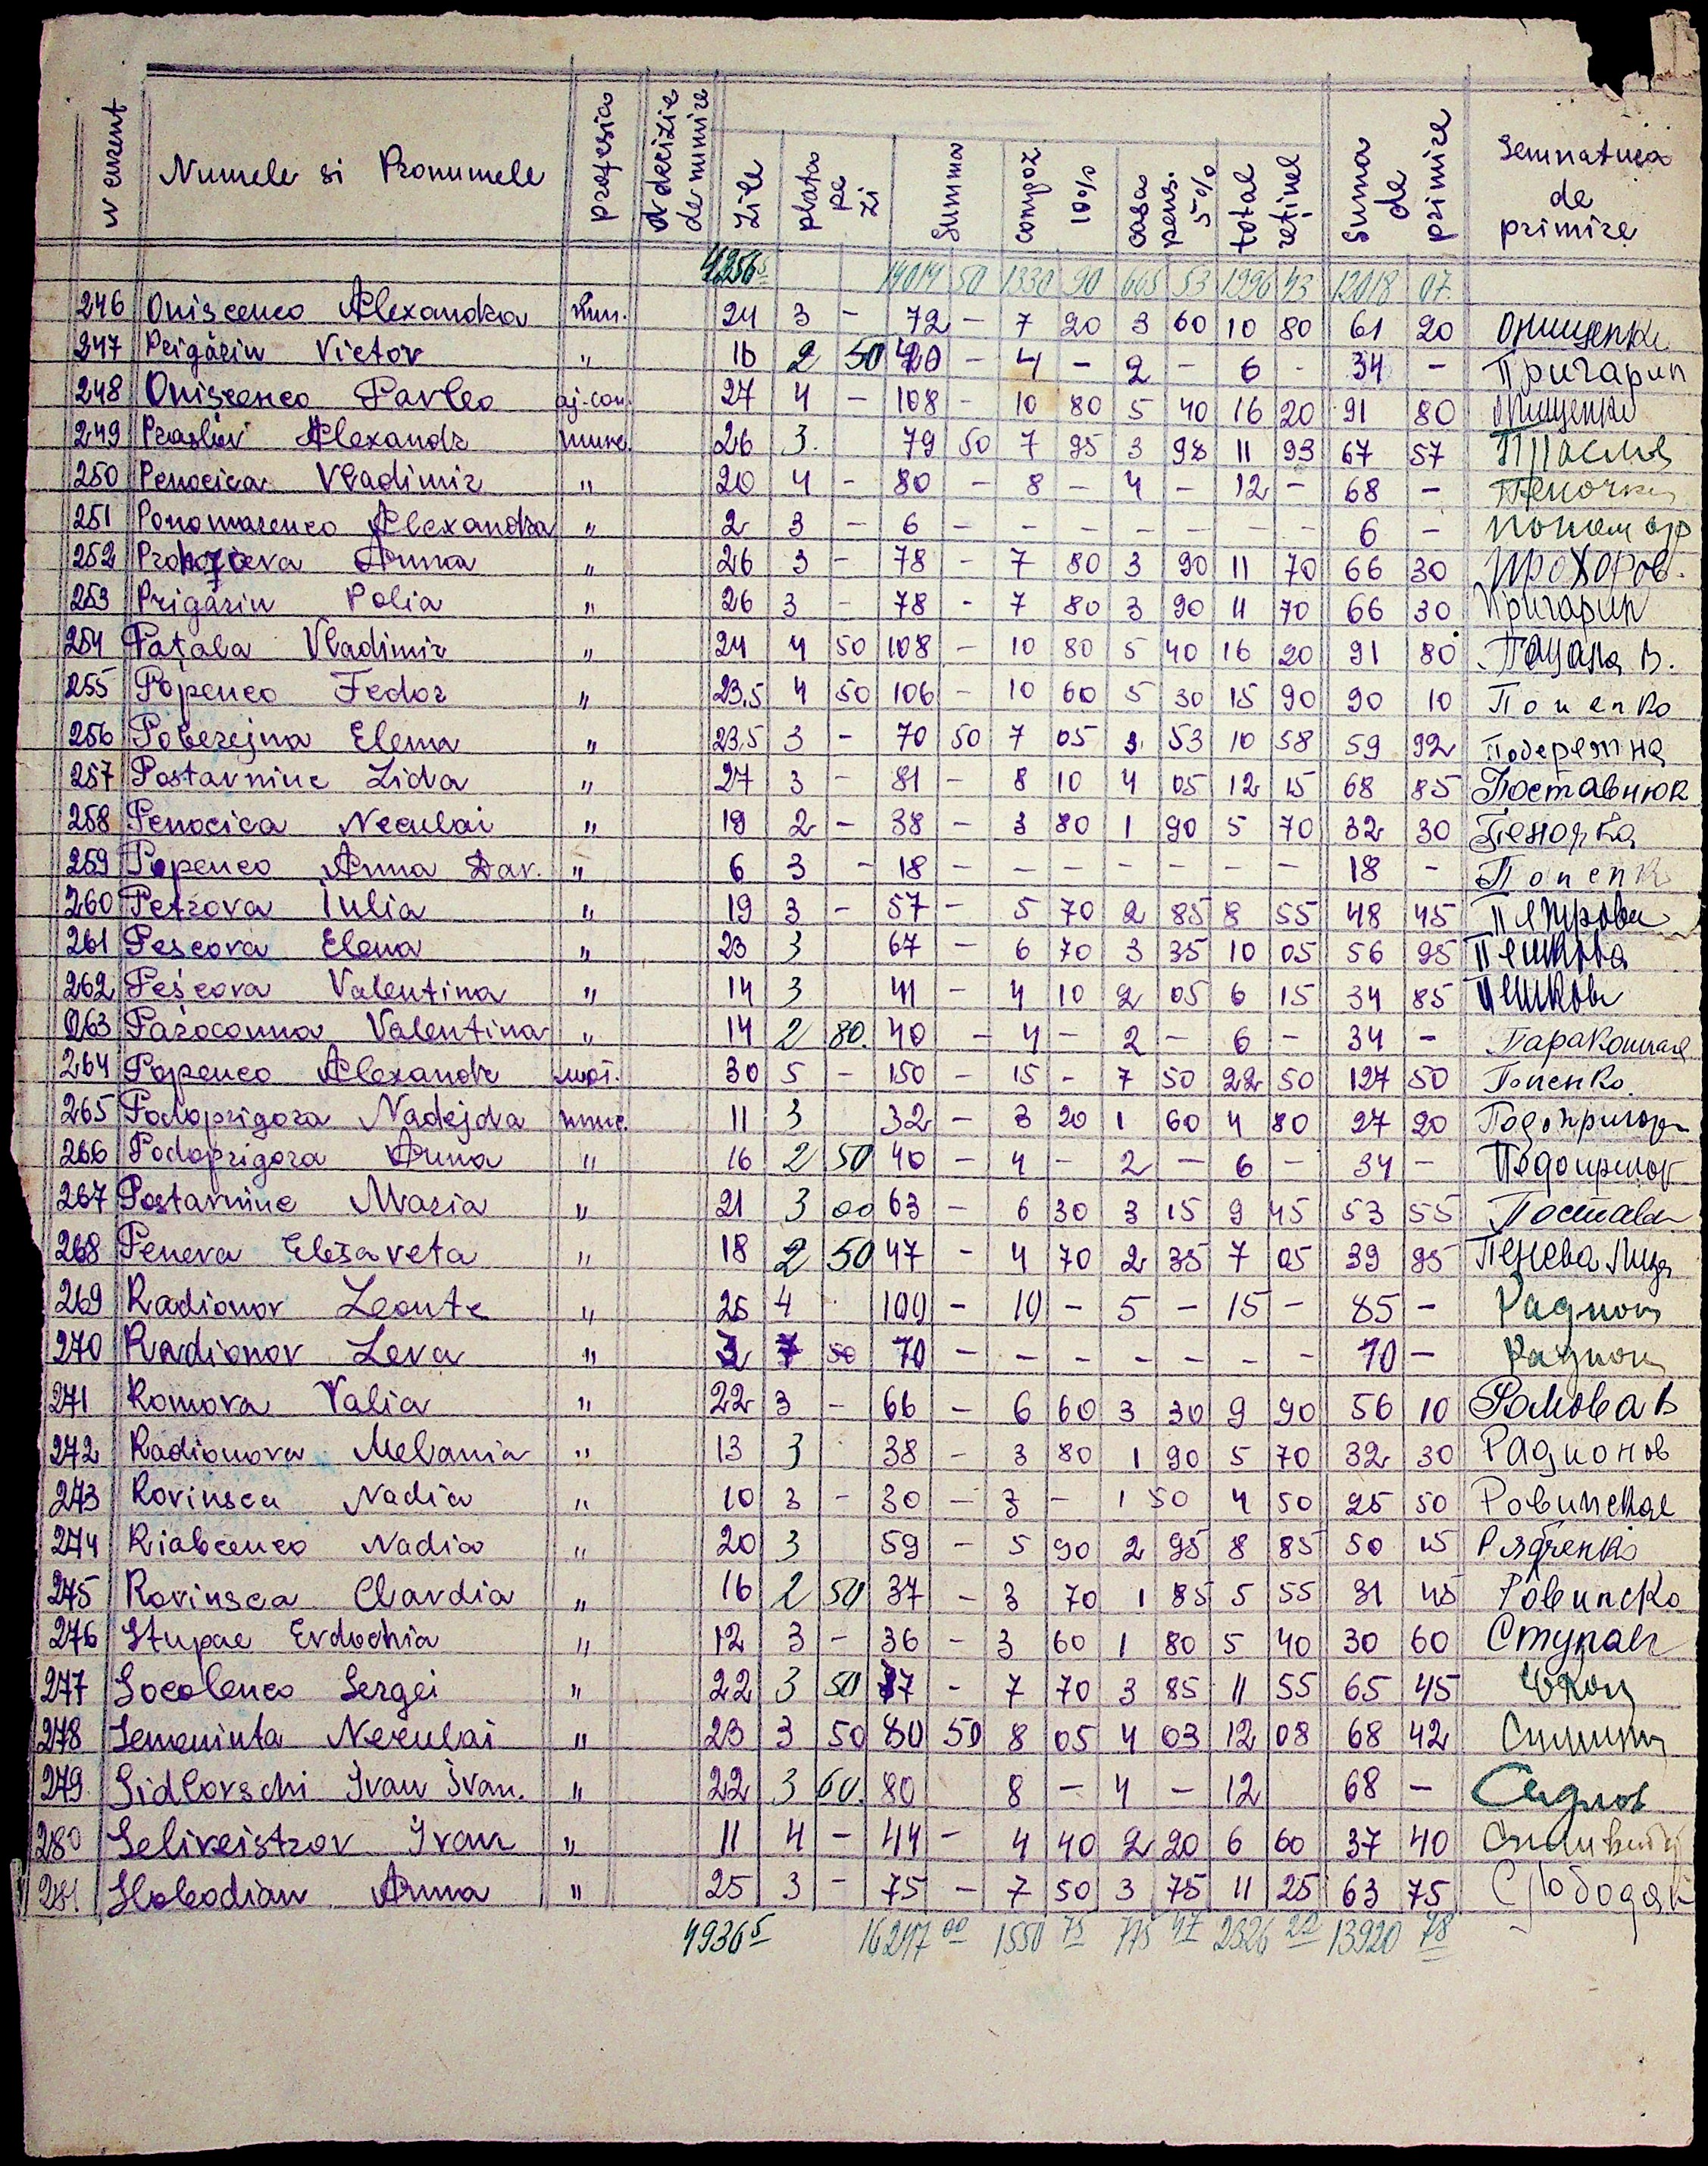 N curent Numele si Pronumele profesia N decizie de numire Zile plata pe zi Summa compoz 10% casa pens. 5% total reținel Suma de primire Semnatura de primire
4256⁵ 14014 50 1330 90 665 53 1996 43 12018 07
246 Oniscenco Alexandra mun. 24 3 - 72 - 7 20 3 60 10 80 61 20 Онищенко
247 Prigărin Victor " 16 2 50 40 - 4 - 2 - 6 - 34 - Пригарин
248 Oniscenco Pavleo aj-con. 27 4 - 108 - 10 80 5 40 16 20 91 80 Онищенко
249 Praslov Alexandr munc. 26 3. 79 50 7 95 3 98 11 93 67 57 Праслов
250 Penocica Vladimir " 20 4 - 80 - 8 - 4 - 12 - 68 - Пеночка
251 Ponomarenco Alexandra " 2 3 - 6 - - - - - - - 6 - Пономар
252 Prohorova Anna " 26 3 - 78 - 7 80 3 90 11 70 66 30 Прохоров.
253 Prigărin Polia " 26 3 - 78 - 7 80 3 90 11 70 66 30 Пригарин
254 Pațala Vladimir " 24 4 50 108 - 10 80 5 40 16 20 91 80 Пацала В.
255 Popenco Fedor " 23,5 4 50 106 - 10 60 5 30 15 90 90 10 Попенко
256 Poberejna Elena " 23,5 3 - 70 50 7 05 3 53 10 58 59 92 Побережна
257 Postavniuc Lida " 27 3 - 81 - 8 10 4 05 12 15 68 85 Поставнюк
258 Penocica Neculai " 19 2 - 38 - 3 80 1 90 5 70 32 30 Пеночка
259 Popenco Anna Dav. " 6 3 - 18 - - - - - - - 18 - Попенк
260 Petrova Iulia " 19 3 - 57 - 5 70 2 85 8 55 48 45 Петрова
261 Pescova Elena " 23 3 67 - 6 70 3 35 10 05 56 95 Пешкова
262 Peșcova Valentina " 14 3 41 - 4 10 2 05 6 15 34 85 Пешкова
263 Paraconna Valentina " 14 2 80. 40 - 4 - 2 - 6 - 34 - Параконная
264 Popenco Alexandr moi. 30 5 - 150 - 15 - 7 50 22 50 127 50 Попенко.
265 Podoprigora Nadejda munc. 11 3 32 - 3 20 1 60 4 80 27 20 Подопригора
266 Podoprigora Anna " 16 2 50 40 - 4 - 2 - 6 - 34 - Подопригор
267 Postavniuc Maria " 21 3 00 63 - 6 30 3 15 9 45 53 55 Постави
268 Peneva Elisaveta " 18 2 50 47 - 4 70 2 35 7 05 39 95 Пенева Лиза
269 Radionov Leonte " 25 4 100 - 10 - 5 - 15 - 85 - Радион
270 Radionov Leva " 2 7 50 70 - - - - - - - 70 - Радион
271 Romova Valia " 22 3 - 66 - 6 60 3 30 9 90 56 10 Ромова В
272 Radionova Melania " 13 3 38 - 3 80 1 90 5 70 32 30 Радионов
273 Rovinsca Nadia " 10 3 - 30 - 3 - 1 50 4 50 25 50 Ровинская
274 Riabcenco Nadia " 20 3 59 - 5 90 2 95 8 85 50 15 Рябченко
275 Rovinsca Clavdia " 16 2 50 37 - 3 70 1 85 5 55 31 45 Ровинско
276 Stupac Evdochia " 12 3 - 36 - 3 60 1 80 5 40 30 60 Ступак
277 Socolenco Sergei " 22 3 50 77 - 7 70 3 85 11 55 65 45
278 Semeninta Neculai " 23 3 50 80 50 8 05 4 03 12 08 68 42
279. Sidlovschi Ivan Ivan. " 22 3 60. 80 8 - 4 - 12 68 - Сидлов
280 Seliveistrov Ivan " 11 4 - 44 - 4 40 2 20 6 60 37 40
281 Slobodian Anna " 25 3 - 75 - 7 50 3 75 11 25 63 75 Слободян
4936⁵ 16247 00 1550 75 775 47 2326 22 13920 78